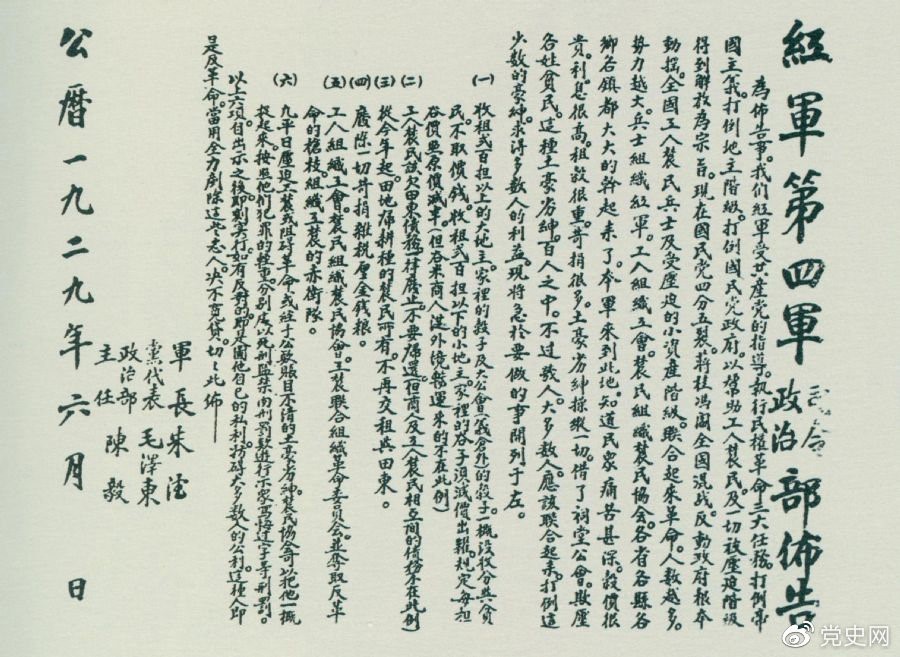 紅軍第四軍司令政治部佈告
為佈告事。我們紅軍受共產党的指導。執行民權革命三大任務。打倒帝
國主義。打倒地主階級。打倒國民党政府。以幫助工人農民及一切被壓迫階級
得到解放為宗旨。現在國民党四分五裂。蔣桂馮閻全國混战。反動政府根本
動搖。全國工人農民兵士及受壓迫的小資產階級。联合起來革命。人數越多。
勢力越大。兵士組織紅軍。工人組織工會。農民組織農民協会。各省各縣各
鄉各鎮都大大的幹起來了。本軍來到此地。知道民眾痛苦甚深。穀價很
貴。利息很高。租穀很重。苛捐很多。土豪劣紳操縱一切。借了祠堂公會。欺壓
各姓貧民。這種土豪劣紳。百人之中。不过數人。大多數人。應該联合起來。打倒這
少數的豪紳。求得多數人的利益。現將急於要做的事開列于左。
(一) 收租弍百担以上的大地主。家裡的穀子及大公會(義倉外)的穀子。一概没收分與貧
民。不取價錢。收租弍百担以下的小地主。家裡的谷子須減價出糶。規定每担
谷價照原價減半。(但谷米商人從外境販運来的不在此例)
(二) 工人農民該欠田東債務。一律廢止。不要歸還。(但商人及工人農民相互間的債務不在此例)
(三) 從今年起。田地歸耕種的農民所有。不再交租與田東。
(四) 廢除一切苛捐雜稅厘金錢糧。
(五) 工人組織工會。農民組織農民協會。工農联合組織革命委員会。並奪取反革
命的槍枝組織工農的赤衛隊。
(六) 凡平日壓迫工農或阻碍革命。或經手公款賬目不清的土豪劣紳。農民協會可以把他一概
捉起來。按照他们犯罪的輕重。分别处以死刑監禁肉刑罰款遊行示眾寫悔过字等刑罰。
以上六項自出示之後。即刻实行。如有反對的。即是圖他自已的私利。妨碍大多數人的公利。這種人即
是反革命。當用全力剷除這些忘人。决不寬貸。切切此佈
軍長 朱德
党代表 毛澤東
政治部主任 陳毅
公曆一九二九年六月 日
党史网